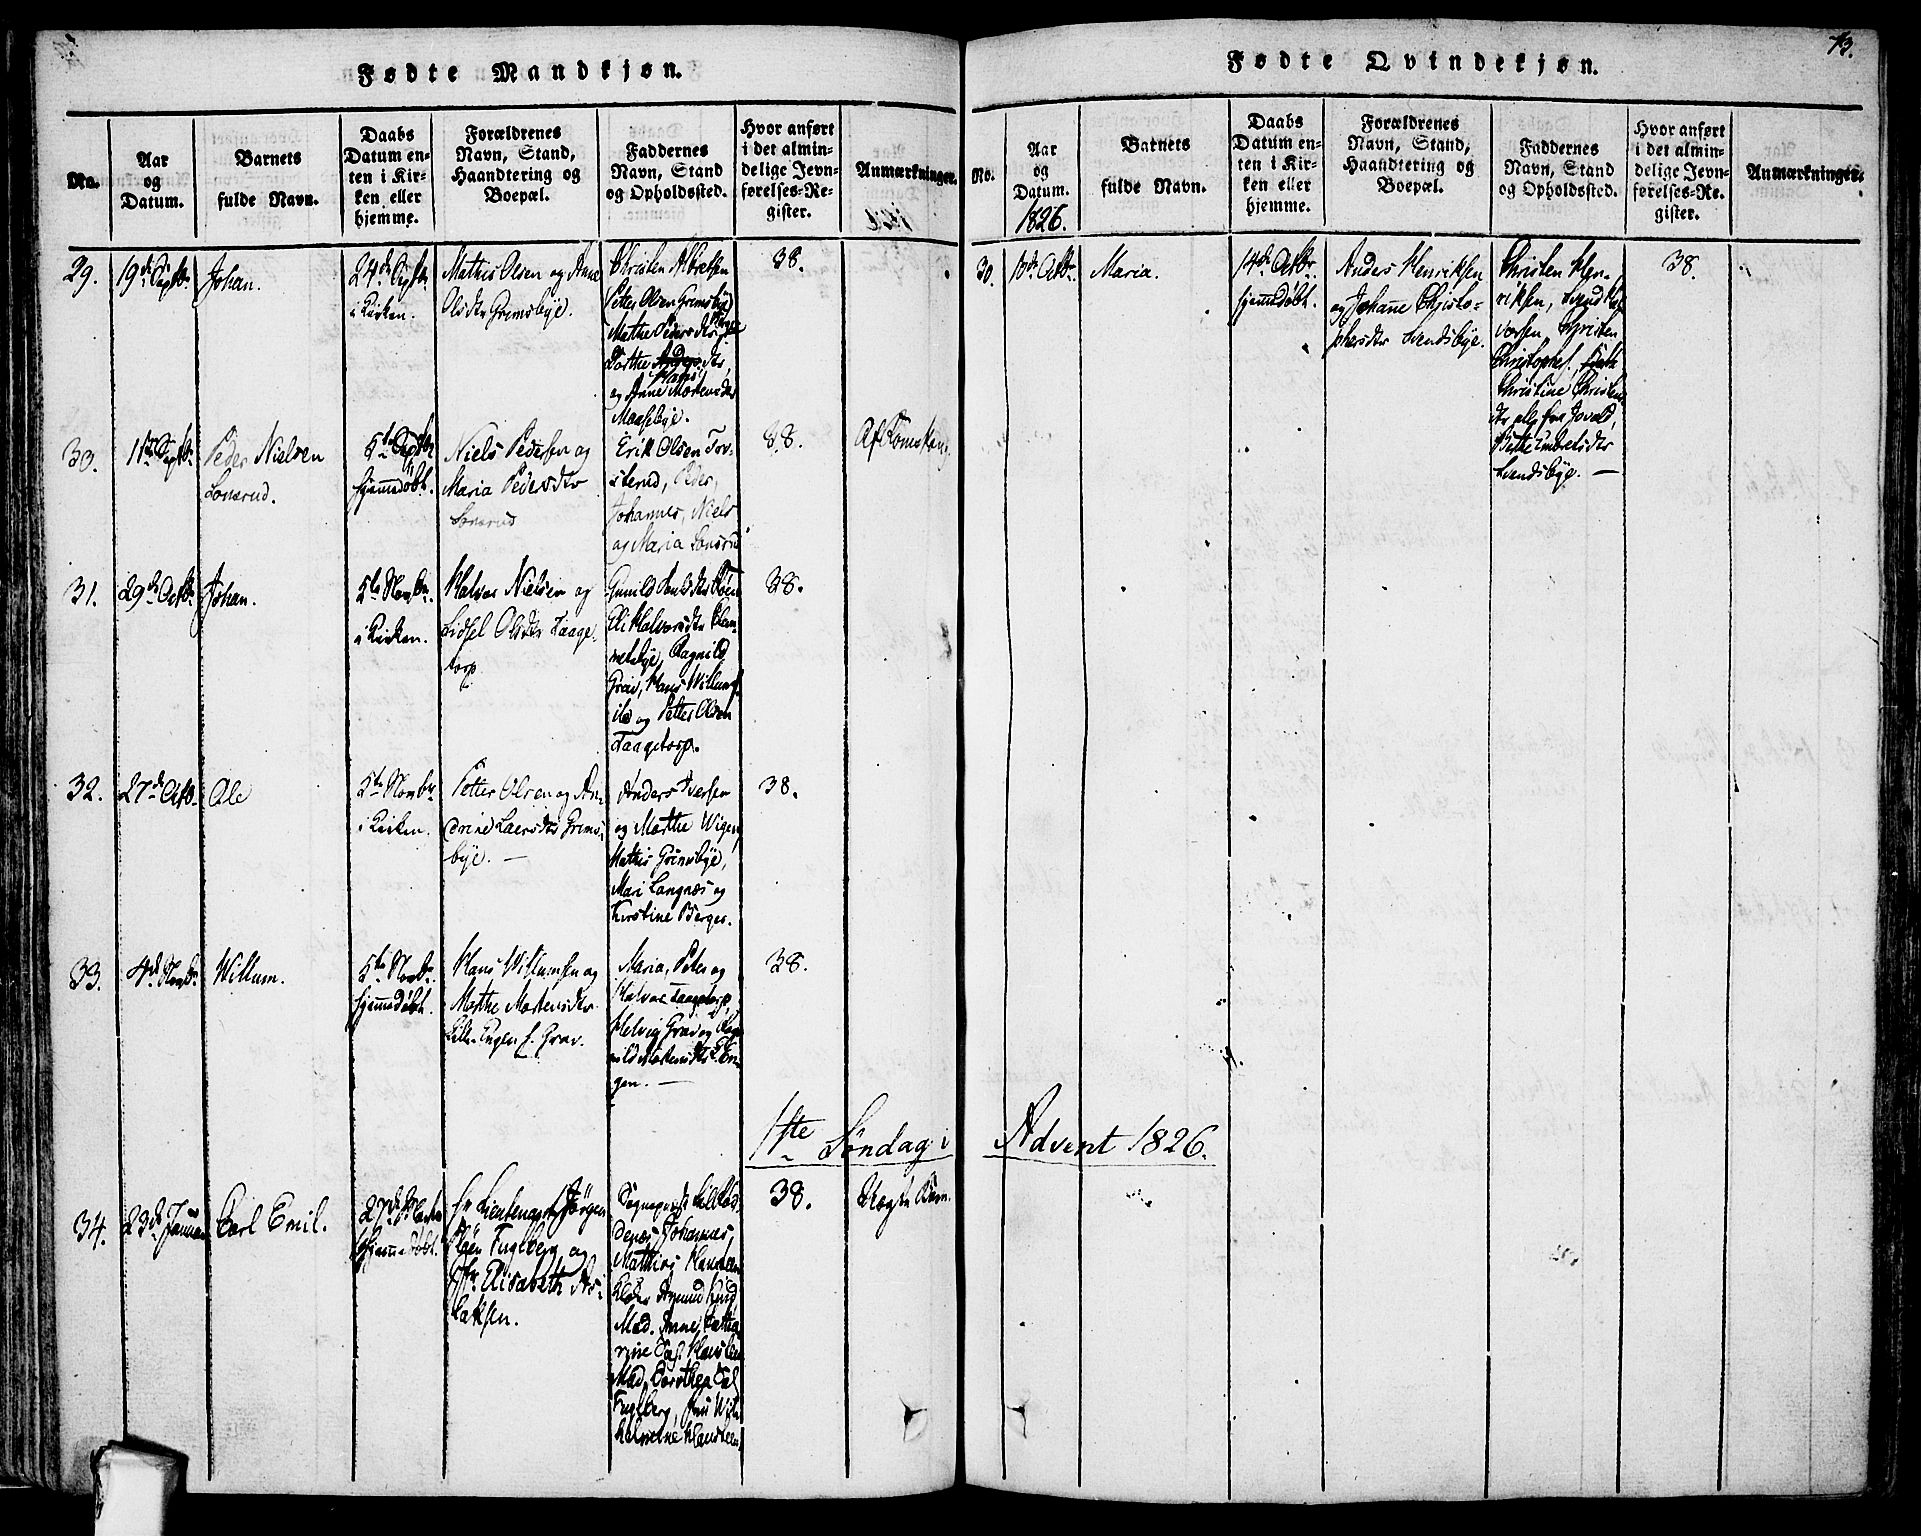 Fødte Mandkjøn.
No.
Aar
og
Datum.
Barnets
fulde Navn.
Daabs
Datum en-
ten i Kir-
ken eller
hjemme.
Forældrenes
Navn, Stand,
Haandtering og
Boepæl.
Faddernes
Navn, Stand
og Opholdssted.
Hvor anført
i det almin-
delige Jevn-
førelses-Re-
gister.
Anmærkninger.
29.
19de Septbr.
Johan.
24de Septbr.
i Kirken.
Mathis Olsen og Anne
Olsdtr Grimsbye.
Petter Olsen Grimsbye
Mathe Pedersdtr
Dorthe Hans dtr,
og Anne Mortensdtr
30.
11te Septbr.
Peder Nielsen
Lonsrud.
hjemmedøbt.
Niels Pedersen og
Maria Pedersdtr
Lonsrud
Erik Olsen Tor-
sterud, Peder,
Johannes, Niels
og Maria Lonsrud
88.
Af Rømskoug
31.
29de Octbr.
Johan.
5te Novbr.
i Kirken.
Halvor Nielsen og
Sidsel Olsdtr Taage-
torp
Eli Halvorsdtr
Ragnild
Grav, Hans Willums-
og Petter Olsen
Taagetorp.
38.
32.
27de Octb.
Ole
5te Novbr.
i Kirken.
Petter Olsen og An-
drine Laersdtr Grims-
bye. —
Anders Iversen
og Marthe Wigen,
Mathis Grimsbye,
Mari Langnæs og
Kirstine Berger.
38.
33.
4de Novbr.
Willum.
5te Novbr.
hjemmedøbt.
Hans Willumsen og
Marthe Mortensdtr
Lille-Engen f. Grav.
Maria, Peter og
Halvor Taagetorp,
Helvig Grav og Rag-
nild Mortensdtr En-
gen. —
38.
1ste Søndag i Advent 1826.
34.
23de Januar
Carl Emil.
hjemmedøbt.
Hr Lieutenant Jørgen
Fuglberg og
Elisabeth As-
laksen.
Johannes,
Mathias
Mad. Anne Catha-
rine
Mad. Dorothea
Fuglberg,
38.
Uægte Barn.
73.
Fødte Qvindekjøn.
No.
Aar
og
Datum.
1826.
Barnets
fulde Navn.
Daabs
Datum en-
ten i Kir-
ken eller
hjemme.
Forældrenes
Navn, Stand,
Haandtering og
Boepæl.
Faddernes
Navn, Stand
og Opholdssted.
Hvor anført
i det almin-
delige Jevn-
førelses-Re-
gister.
Anmærkninger.
30.
10de Octbr.
Maria.
14de Octbr.
hjemmedøbt.
Anders Henriksen
og Johane Christo-
phersdtr Svendsbye.
Christen Hen-
riksen, Svend Hal-
vorsen, Christen
Christophs.,
Christine Christens-
dtr alle fra
Berthe Embretsdtr
Svendsbye. —
38.